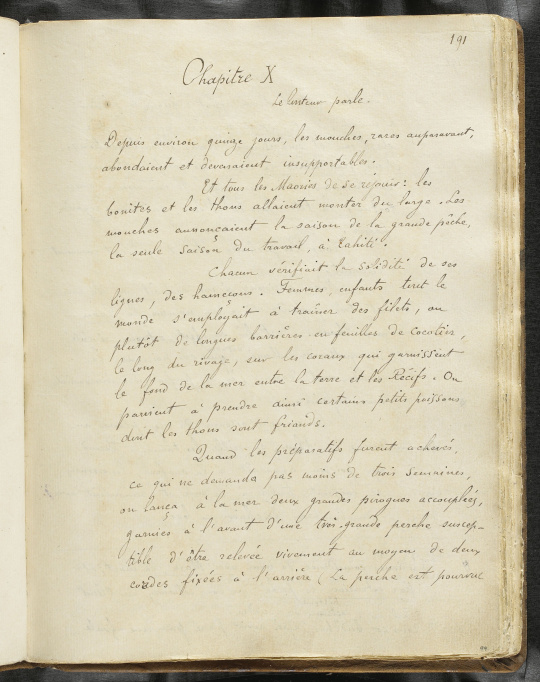 191
Chapitre X
Le conteur parle.
Depuis environ quinze jours, les mouches, rares auparavant,
abondaient et devenaient insupportables.
Et tous les Maories de se réjouir: les
bonites et les thons allaient monter du large. Les
mouches annonçaient la saison de la grande pêche,
la seule saison du travail, à Tahiti.
Chacun vérifiait la solidité de ses
lignes, des hameçons. Femmes, enfants tout le
monde s'employait à traîner des filets, ou
plutôt de longues barrières en feuilles de cocotier,
le long du rivage, sur les coraux qui garnissent
le fond de la mer entre la terre et les Récifs. On
parvient à prendre ainsi certains petits poissons
dont les thons sont friands.
Quand les préparatifs furent achevés,
ce qui ne demanda pas moins de trois semaines,
on lança à la mer deux grandes pirogues accouplées,
garnies à l'avant d'une très grande perche suscep-
tible d'être relevée vivement au moyen de deux
cordes fixées à l'arrière (La perche est pourvue